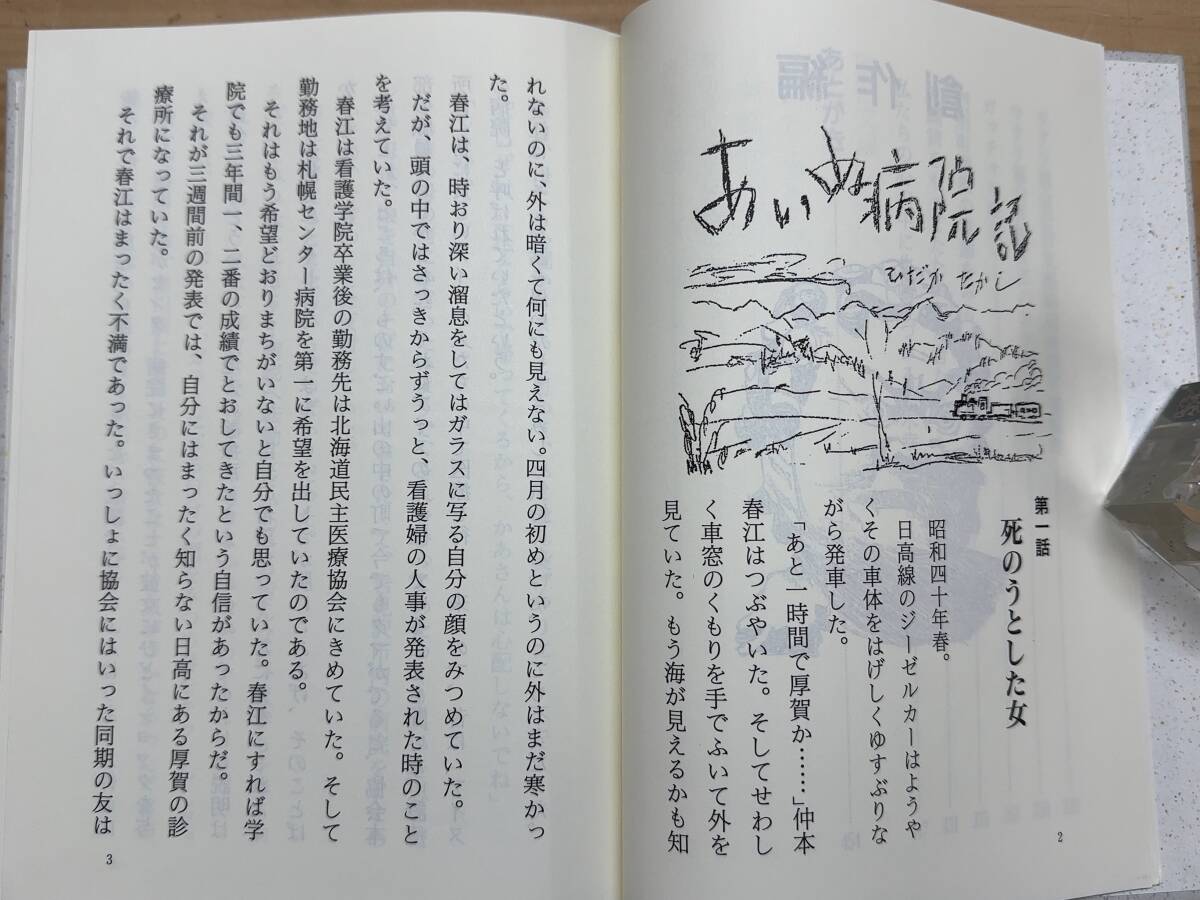 あいぬ病院記
ひだか たかし
第一話
死のうとした女
昭和四十年春。
日高線のジーゼルカーはようや
くその車体をはげしくゆすぶりな
がら発車した。
「あと一時間で厚賀か……」仲本
春江はつぶやいた。そしてせわし
く車窓のくもりを手でふいて外を
見ていた。もう海が見えるかも知
2
れないのに、外は暗くて何にも見えない。四月の初めというのに外はまだ寒かっ
た。
春江は、時おり深い溜息をしてはガラスに写る自分の顔をみつめていた。
だが、頭の中ではさっきからずうっと、看護婦の人事が発表された時のこと
を考えていた。
春江は看護学院卒業後の勤務先は北海道民主医療協会にきめていた。そして
勤務地は札幌センター病院を第一に希望を出していたのである。
それはもう希望どおりまちがいないと自分でも思っていた。春江にすれば学
院でも三年間一、二番の成績でとおしてきたという自信があったからだ。
それが三週間前の発表では、自分にはまったく知らない日高にある厚賀の診
療所になっていた。
それで春江はまったく不満であった。いっしょに協会にはいった同期の友は
3
創作編